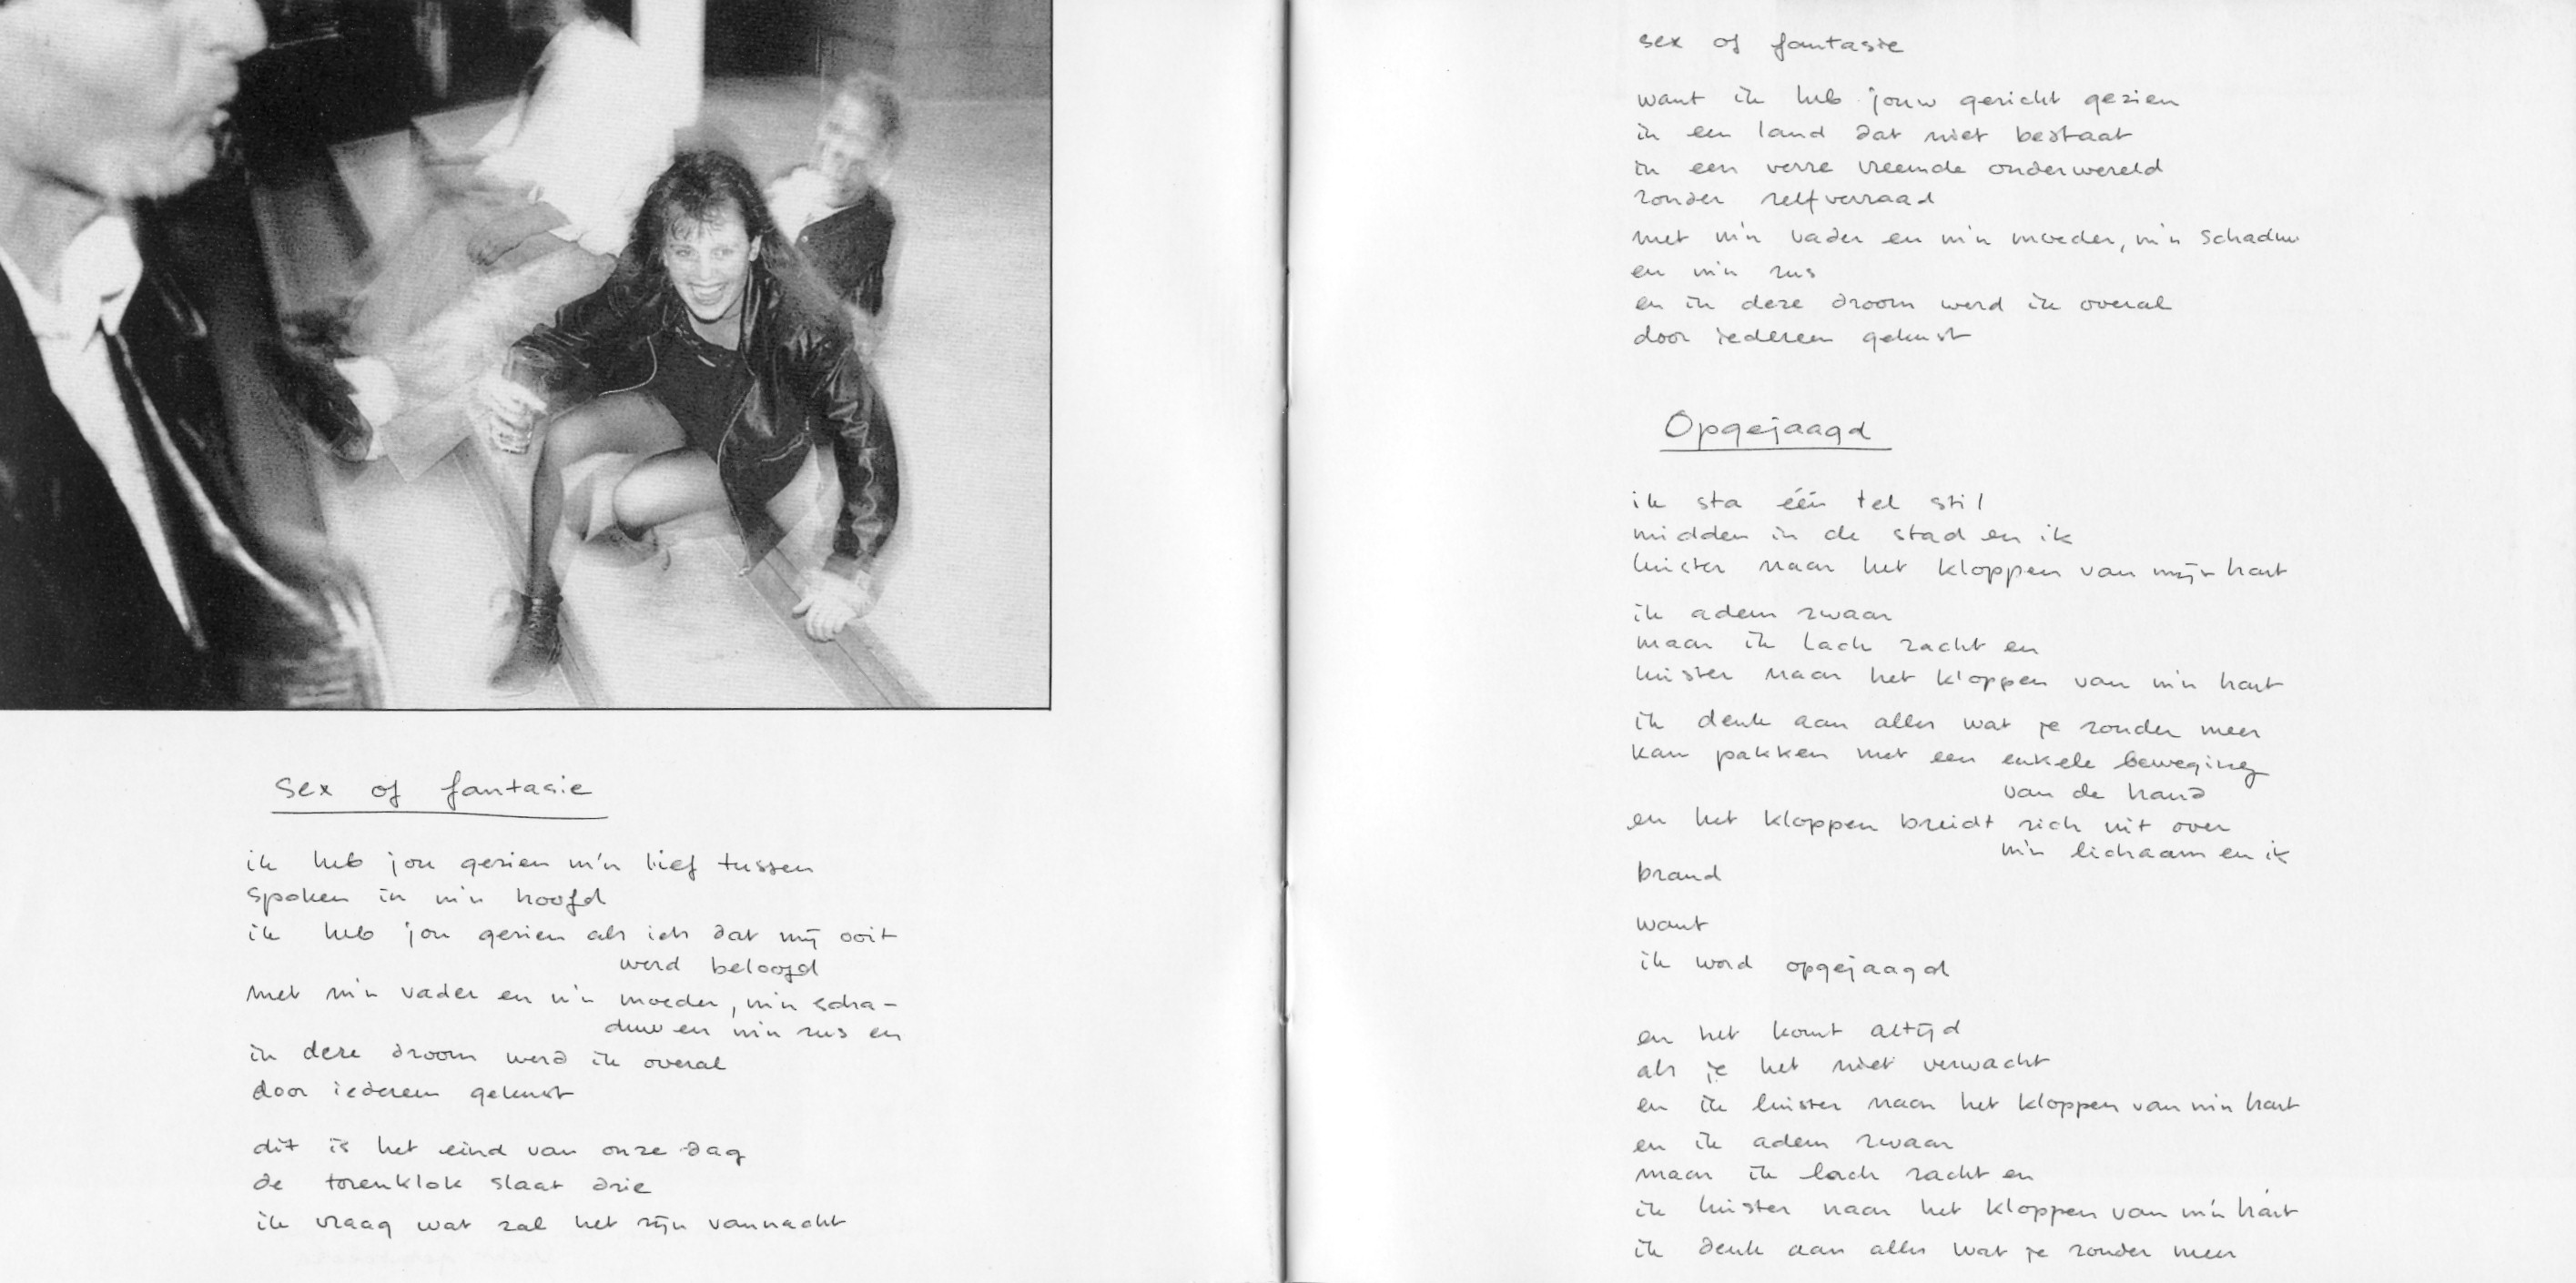 sex of fantasie
ik heb jou gezien m'n lief tussen
spoken in m'n hoofd
ik heb jou gezien als iets dat mij ooit
werd beloofd
met m'n vader en m'n moeder, m'n scha-
duw en m'n zus en
in deze droom werd ik overal
door iedereen gekust
dit is het eind van onze dag
de torenklok slaat drie
ik vraag wat zal het zijn vannacht
sex of fantasie
want ik heb jouw gezicht gezien
in een land dat niet bestaat
in een verre vreemde onderwereld
zonder zelfverraad
met m'n vader en m'n moeder, m'n schaduw
en m'n zus
en in deze droom werd ik overal
door iedereen gekust
Opgejaagd
ik sta één tel stil
midden in de stad en ik
luister naar het kloppen van mijn hart
ik adem zwaar
maar ik lach zacht en
luister naar het kloppen van m'n hart
ik denk aan alles wat je zonder meer
kan pakken met een enkele beweging
van de hand
en het kloppen breidt zich uit over
m'n lichaam en ik
brand
want
ik word opgejaagd
en het komt altijd
als je het niet verwacht
en ik luister naar het kloppen van m'n hart
en ik adem zwaar
maar ik lach zacht en
ik luister naar het kloppen van m'n hart
ik denk aan alles wat je zonder meer